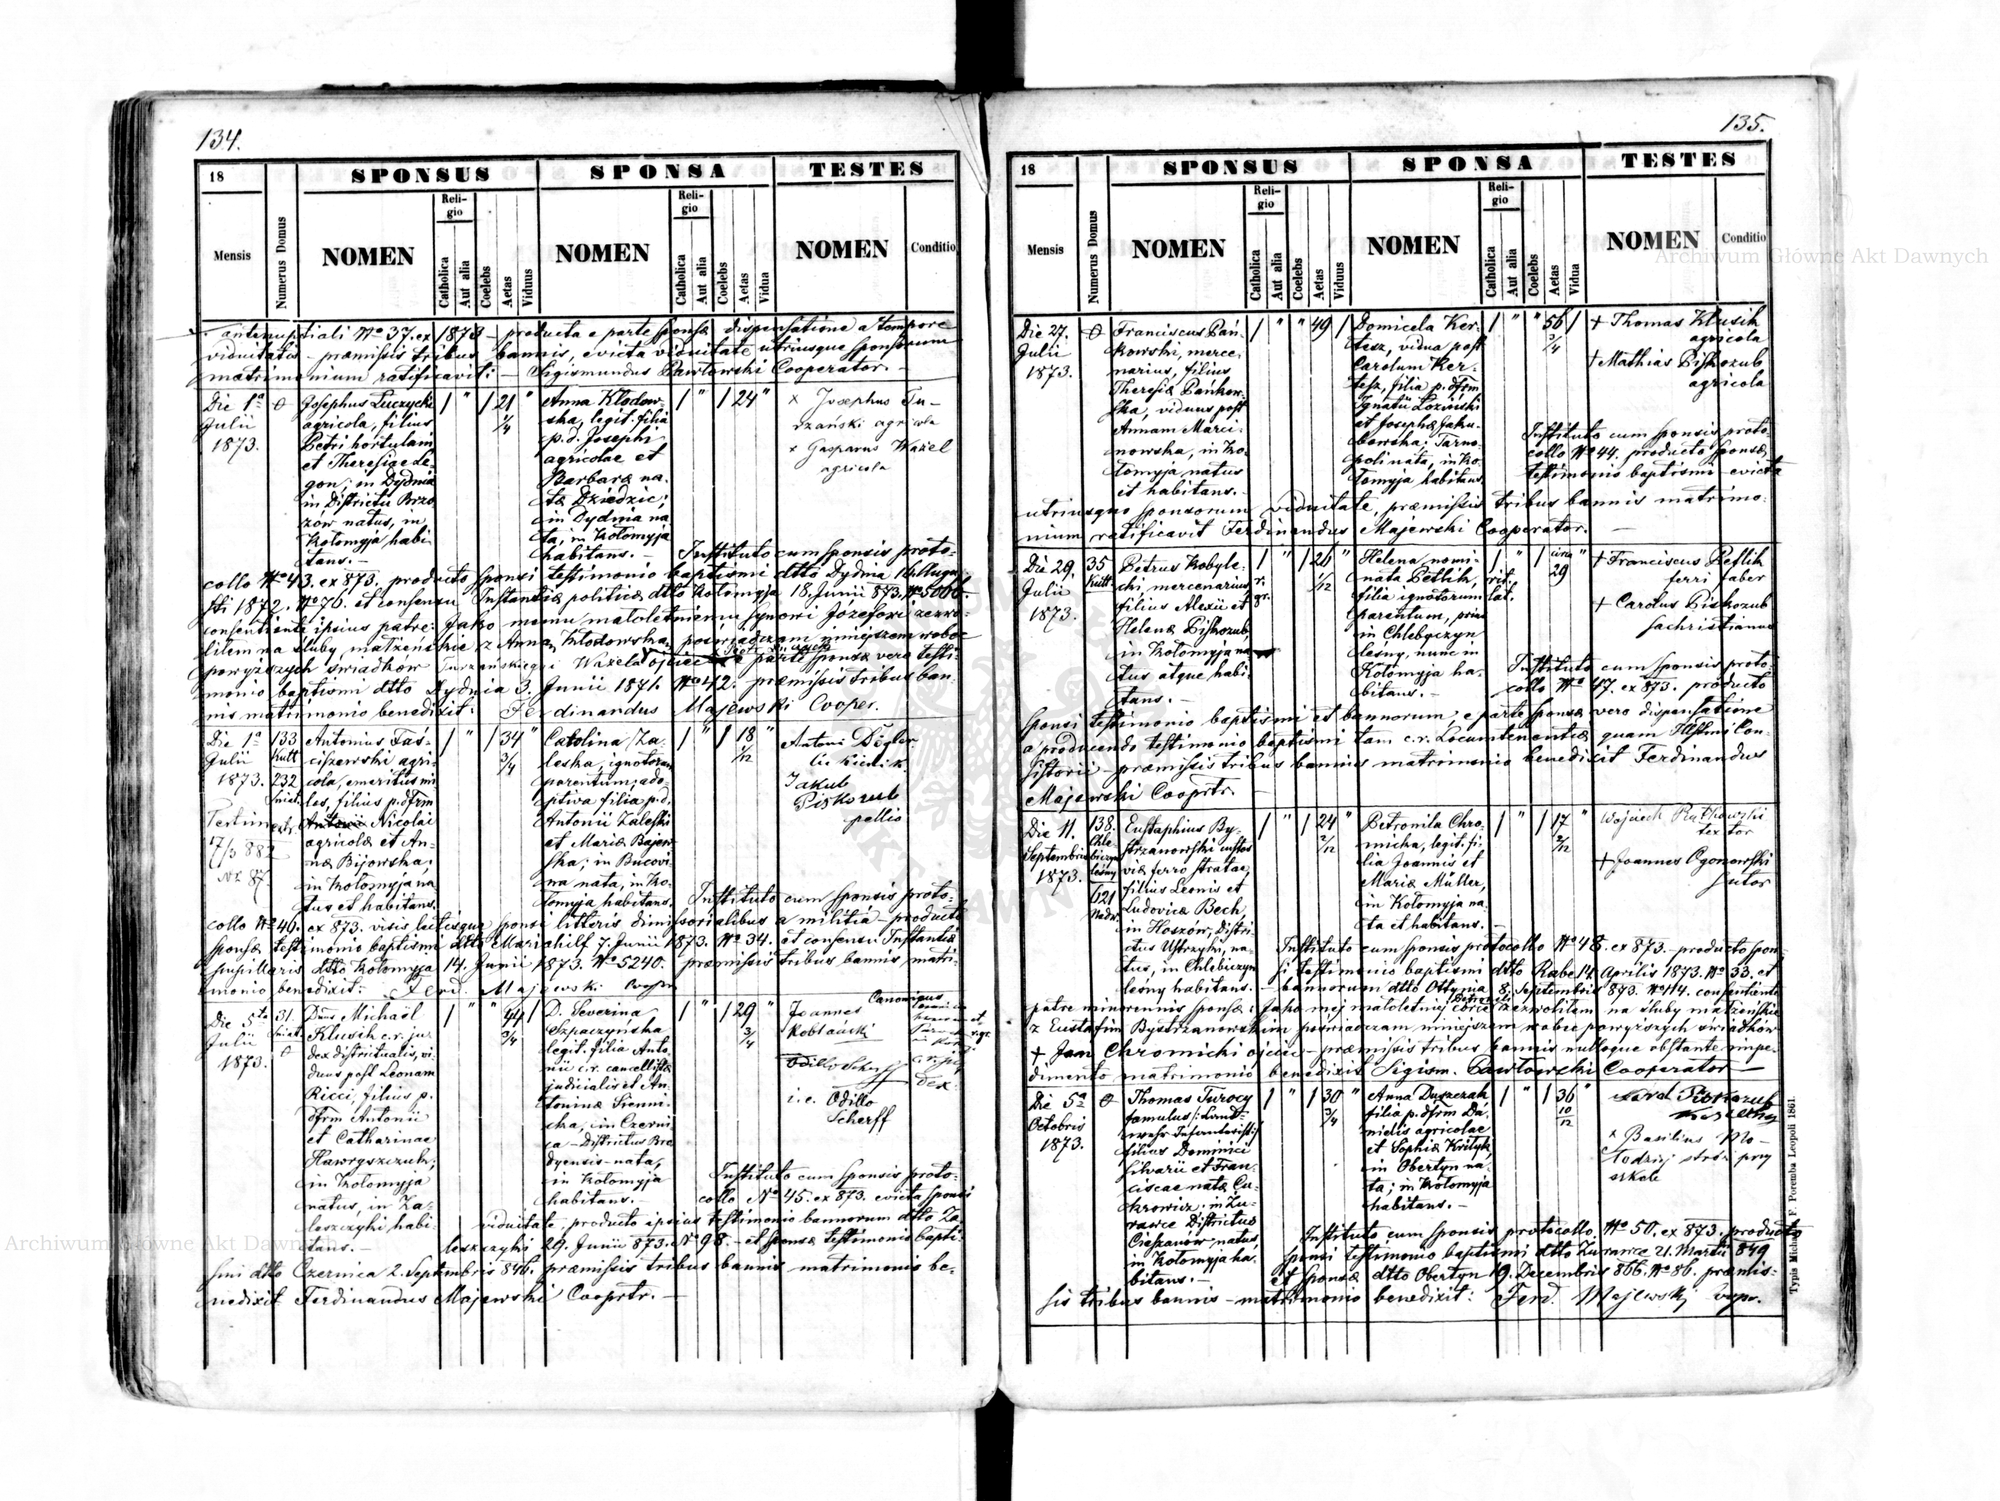 134.
18
SPONSUS
SPONSA
TESTES
Mensis
Numerus Domus
NOMEN
Religio
Catholica
Aut alia
Coelebs
Aetas
Viduus
NOMEN
Religio
Catholica
Aut alia
Coelebs
Aetas
Vidua
NOMEN
Conditio
antenuptiali No 37. ex 1873 – producta e parte sponsæ dispensatione a tempore
viduitatis – præmissis tribus bannis, evicta viduitate utriusque sponsorum
matrimonium ratificavit: – Sigismundus Pawłowski Cooperator. –
Die 1a
Julii
1873.
0
Josephus Łuczycki
agricola, filius
Petri hortulani
et Theresiae Le-
gon; in Dydnia
in Districtu Brzo-
zów natus, in
Kołomyja habi-
tans. –
1 " 1 21 1/4 "
Anna Kłodow-
ska, legit. filia
p. d. Josephi
agricolae et
Barbaræ na-
tæ Dziedzic;
in Dydnia na-
ta, in Kołomyja
habitans. –
1 " 1 24 "
x Josephus Tu-
rzański agricola
x Gasparus Wazel
agricola
Instituto cum sponsis proto-
collo No 43. ex 873, producto sponsi testimonio baptismi dtto Dydnia 16 Augu-
sti 1872. No 76. et consensu Instantiæ politicæ dtto Kołomyja 18. Junii 873. No 5066.
consentiente ipsius patre: Jako memu małoletniemu synowi Józefowi zezwo-
liłem na śluby małżeńskie z Anną Kłodowską poświadczam niniejszem wobec
powyższych świadków Turzańskiego i Wazela ojciec e parte sponsæ vero testi-
monio baptismi dtto Dydnia 3. Junii 1871. No 42. præmissis tribus ban-
nis matrimonio benedixit: Ferdinandus Majewski Cooper.
Die 1a
Julii
1873.
133
Kutt
232
Sniat.
Testim. extr.
17/3 882
Nr 87.
Antonius Faś-
ciszewski agri-
cola, emeritus mi-
les, filius p. dfrm
Antonii Nicolai
agricolæ et An-
næ Bijowska;
in Kołomyja na-
tus et habitans.
1 " 1 34 3/4 "
Carolina Za-
leska, ignotorum
parentum, ado-
ptiva filia p. d.
Antonii Zaleski
et Mariæ Bajew-
ska; in Bucovi-
na nata, in Ko-
łomyja habitans.
1 " 1 18 1/12 "
Antoni Degler
Jakub
Piskozub
pellio
Instituto cum sponsis proto-
collo No 46. ex 873. visis lectisque sponsi litteris dimissorialibus a militia – producto
sponsæ testimonio baptismi dtto Mariahilf 7. Junii 1873. No 34. et consensu Instantiæ
pupillaris dtto Kołomyja 14. Junii 1873. No 5240. præmissis tribus bannis matri-
monio benedixit: Ferd. Majewski Cooper
Die 5ta
Julii
1873.
31.
Sniat.
0
Dnus Michaël
Klusik c. r. ju-
dex districtualis, vi-
duus post Leonam
Ricci, filius p.
dfrm Antonii
et Catharinae
Hawryszczuk;
in Kołomyja
natus, in Za-
leszczyki habi-
tans. –
1 " " 44 3/4
D. Severina
Szpaczyńska
legit. filia Anto-
nii c. r. cancellistæ
judicialis et An-
toninæ Sienni-
cka, in Czerni-
ca – Districtus Bro-
dyensis – nata,
in Kołomyja
habitans. –
1 " 1 29 3/4 "
Joannes
Kobłański
Canonicus
Odillo Scherff
i. e. Odillo
Scherff
c. r. ju-
dex.
Instituto cum sponsis proto-
collo No 45. ex 873. evicta sponsi
viduitate, producto ipsius testimonio bannorum dtto Za-
leszczyki 29. Junii 873. No 98. – et sponsæ testimonio bapti-
smi dtto Czernica 2. Septembris 846. præmissis tribus bannis matrimonio be-
nedixit Ferdinandus Majewski Cooprtr. –
135.
18
SPONSUS
SPONSA
TESTES
Mensis
Numerus Domus
NOMEN
Religio
Catholica
Aut alia
Coelebs
Aetas
Viduus
NOMEN
Religio
Catholica
Aut alia
Coelebs
Aetas
Vidua
NOMEN
Conditio
Die 27.
Julii
1873.
0
Franciscus Pań-
kowski, merce-
narius, filius
Theresiæ Pańkow-
ska, viduus post
Annam Marci-
nowska, in Ko-
łomyja natus
et habitans. –
1 " " 49 1
Domicela Ker-
tesz, vidua post
Carolum Ker-
tesz, filia p. dfrm
Ignatii Łoziński
et Josephæ Jaku-
bowska; Tarno-
poli nata, in Ko-
łomyja habitans.
1 " " 56 3/4 1
+ Thomas Klusik
agricola
+ Mathias Piskozub
agricola
Instituto cum sponsis proto-
collo No 44. producto sponsæ
testimonio baptismi – evicta
utriusque sponsorum viduitate, præmissis tribus bannis matrimo-
nium ratificavit Ferdinandus Majewski Cooperator. –
Die 29.
Julii
1873.
35
Kutt
Petrus Kobyle-
cki mercenarius
filius Alexii et
Helenæ Piskozub,
in Kołomyja na-
tus atque habi-
tans. –
1 r. gr. " 1 26 1/2 "
Helena nomi-
nata Petlik,
filia ignotorum
parentum, prius
in Chlebyczyn
leśny, nunc in
Kołomyja ha-
bitans. –
1 rit. lat. " 1 circa 29 "
+ Franciscus Petlik
ferri faber
+ Carolus Piskozub
sachristianus
Instituto cum sponsis proto-
collo No 47. ex 873. producto
sponsi testimonio baptismi et bannorum; e parte sponsæ vero dispensatione
a producendo testimonio baptismi tam c. r. Locumtenentiæ quam Illstmi Con-
sistorii – præmissis tribus bannis matrimonio benedixit Ferdinandus
Majewski Cooprtr. –
Die 11.
Septembris
1873.
138.
Chle-
biczyn
leśny
621
Nadw.
Eustaphius By-
strzanowski custos
viæ ferro stratae,
filius Leonis et
Ludovicæ Bech,
in Hoszów, distri-
ctus Ustrzyki, na-
tus, in Chlebiczyn
leśny habitans.
1 " 1 24 2/12 "
Petronila Chro-
micka, legit. fi-
lia Joannis et
Mariæ Müller,
in Kołomyja na-
ta et habitans. –
1 " 1 17 2/12 "
Wojciech Rutkowski
textor
+ Joannes Ogonowski
sutor
Instituto cum sponsis protocollo No 48. ex 873. – producto spon-
si testimonio baptismi dtto Rabe 14 Aprilis 1873. No 33. et
bannorum dtto Ottynia 8. Septembris 873. No 114. consentiente
patre minorennis sponsæ: Jako mej małoletniej córce Petroneli zezwoliłem na śluby małżeńskie
z Eustafim Bystrzanowskim poświadczam niniejszem wobec powyższych świadków
+ Jan Chromicki ojciec – præmissis tribus bannis nulloque obstante impe-
dimento matrimonio benedixit Sigism. Pawłowski Cooperator –
Die 5a
Octobris
1873.
0
Thomas Turocy
famulus /: Land-
wehr Infanterist :/
filius Dominici
silvarii et Fran-
ciscae natæ Cu-
krowicz; in Żu-
rawce Districtus
Cieszanow natus
in Kołomyja ha-
bitans. –
1 " 1 30 3/4 "
Anna Duszczak
filia p. dfrm Da-
nielis agricolae
et Sophiæ Krityk,
in Obertyn na-
ta; in Kołomyja
habitans. –
1 " 1 36 10/12 "
Karol Piskozub
Kościelny
x Basilius Mo-
łodziej stróż przy
szkole
Instituto cum sponsis protocollo No 50. ex 873. producto
sponsi testimonio baptismi dtto Żurawce 21. Martii 849
et sponsæ dtto Obertyn 19. Decembris 866. No 86. præmis-
sis tribus bannis – matrimonio benedixit: Ferd. Majewski coopr.
Typis Michaelis F. Poremba Leopoli 1861.
Archiwum Główne Akt Dawnych
Archiwum Główne Akt Dawnych